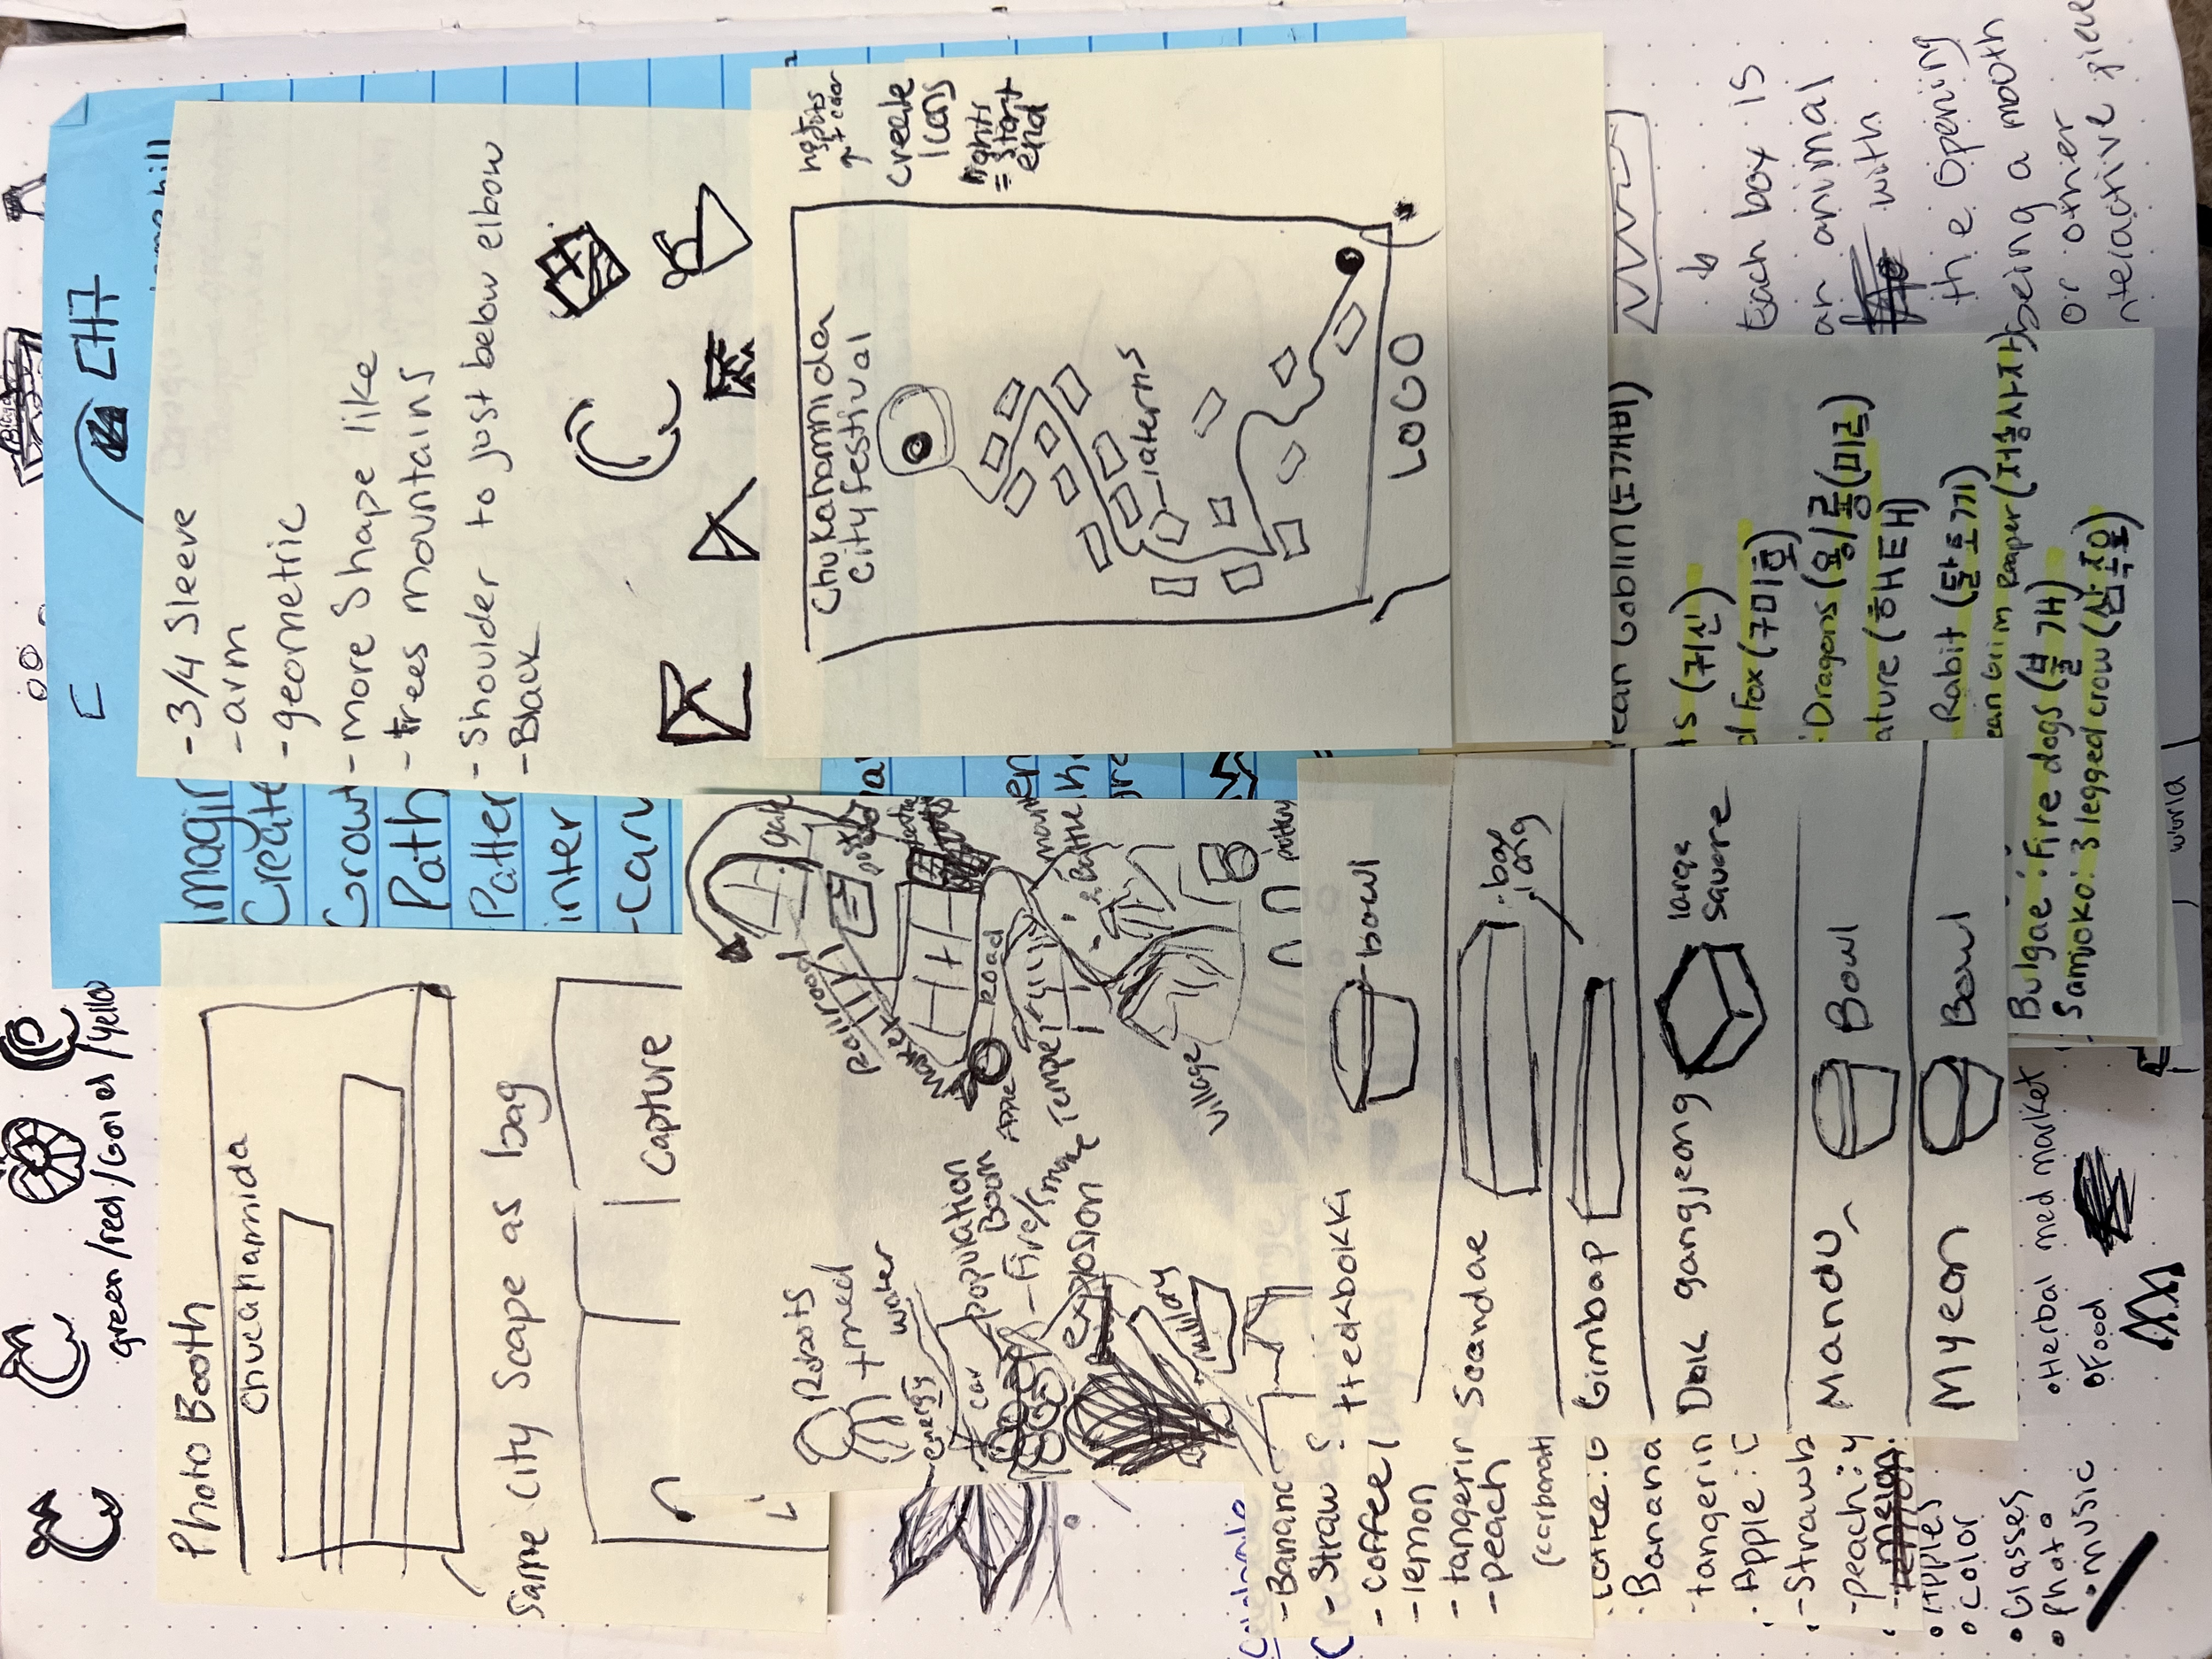 Photo Booth
Chucahamida
Same City Scape as
bag
Capture
CH7
Imagin
Create
Growt
Path
Patter
inter
-Carv
-3/4 Sleeve
-arm
-geometric
-more Shape like
-trees mountains
-Shoulder to just below elbow
-Black
green/red/Gold/yello
create
Icons
lights
= start
end
Chukahamnida
City Festival
laterns
LOGO
Railroad
Market
Road
Temple
Village
gate
Battle
pottery
Robots
+med
water
energy
car
population
Boom
-Fire/smoke
explosion
military
tteokbokki
bowl
Soondae
Gimbap
Dak gangjeong
large
square
Mandu
Bowl
Myeon
Bowl
-Banana
-Straw
-coffee
-lemon
-tangerin
-peach
(carbonati
Banana
tangerin
Apple:
-Strawb
-peach:y
ean Goblin (도깨비)
ts (귀신)
d Fox (구미호)
Dragons (용/룡(미르)
ature (해태)
Rabit (달토끼)
ean Grim Reaper (저승사자)
Bulgae: Fire dogs (불개)
Samjoko: 3 legged crow (삼족오)
Each box is
an animal
with
the opening
being a mouth
or other
nteractive piece
world
•Herbal med market
•Food
•Apples
•Color
•Glasses
•Photo
•music